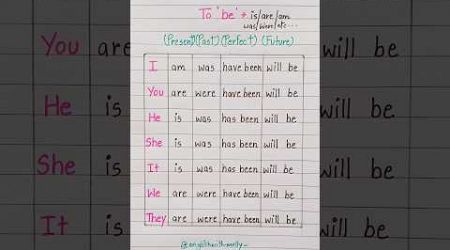 To 'be' → is/are/am
was/were/etc...
(Present)(Past)(Perfect)(Future)
I am was have been will be
You are were have been will be
He is was has been will be
She is was has been will be
It is was has been will be
We are were have been will be
They are were have been will be
You are
He is
She is
It is
will be
will be
will be
will be